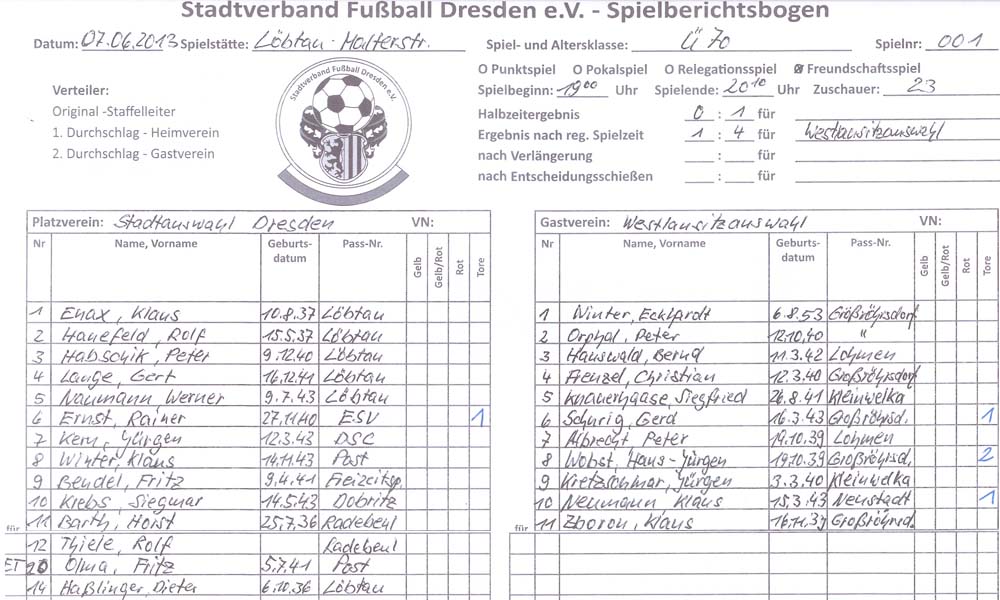 Stadtverband Fußball Dresden e.V. - Spielberichtsbogen
Datum: 07.06.2013 Spielstätte: Löbtau - Malterstr. Spiel- und Altersklasse: Ü 70 Spielnr: 001
O Punktspiel O Pokalspiel O Relegationsspiel Ø Freundschaftsspiel
Verteiler: Spielbeginn: 19⁰⁰ Uhr Spielende: 20¹⁰ Uhr Zuschauer: 23
Original -Staffelleiter Halbzeitergebnis 0 : 1 für
1. Durchschlag - Heimverein Ergebnis nach reg. Spielzeit 1 : 4 für Westlausitzauswahl
2. Durchschlag - Gastverein nach Verlängerung : für
nach Entscheidungsschießen : für
Stadtverband Fußball Dresden e.V.
Platzverein: Stadtauswahl Dresden VN:
Nr Name, Vorname Geburts-datum Pass-Nr. Gelb Gelb/Rot Rot Tore
1 Enax, Klaus 10.8.37 Löbtau
2 Hanefeld, Rolf 15.5.37 Löbtau
3 Habschik, Peter 9.12.40 Löbtau
4 Lange, Gert 16.12.41 Löbtau
5 Naumann, Werner 9.7.43 Löbtau
6 Ernst, Rainer 27.11.40 ESV 1
7 Kern, Jürgen 12.3.43 DSC
8 Winter, Klaus 14.11.43 Post
9 Bendel, Fritz 9.4.41 Freizeitsp.
10 Krebs, Siegmar 14.5.43 Dobritz
für 11 Barth, Horst 25.7.36 Radebeul
12 Thiele, Rolf Radebeul
ET Olma, Fritz 5.7.41 Post
14 Haßlinger, Dieter 6.10.36 Löbtau
Gastverein: Westlausitzauswahl VN:
Nr Name, Vorname Geburts-datum Pass-Nr. Gelb Gelb/Rot Rot Tore
1 Winter, Eckhardt 6.8.53 Großröhrsdorf
2 Orphal, Peter 12.10.40 "
3 Hauswald, Bernd 11.3.42 Lohmen
4 Frenzel, Christian 12.3.40 Großröhrsdorf
5 Knauerhaase, Siegfried 26.8.41 Kleinwelka
6 Schurig, Gerd 16.3.43 Großröhrsd. 1
7 Albrecht, Peter 19.10.39 Lohmen
8 Wobst, Hans-Jürgen 19.10.39 Großröhrsd. 2
9 Kretzschmar, Jürgen 3.3.40 Kleinwelka
10 Neumann, Klaus 15.3.43 Neustadt 1
für 11 Zboron, Klaus Großröhrsd.